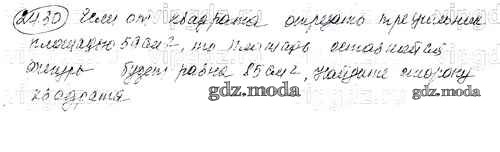 2430 Если от квадрата отрезать треугольник
площадью 59 см², то площадь оставшейся
фигуры будет равна 85 см², Найдите сторону
квадрата
gdz.moda
gdz.moda